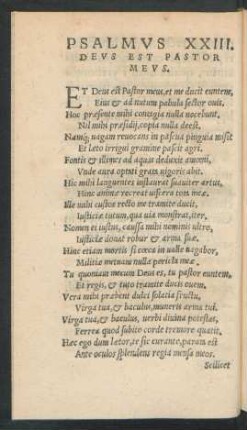 PSALMVS XXIII.
DEVS EST PASTOR
MEVS.
ET Deus est Pastor meus, et me ducit euntem,
Eius & ad nutum pabula sector ouis.
Hoc præsente mihi contagia nulla nocebunt.
Nil mihi præsidij, copia nulla deest.
Namq; uagam reuocans in pascua pinguia misit
Et leto irrigui gramine pascit agri.
Fontis & illimes ad aquas deduxit amœni,
Vnde aura optati gratia uigoris abit.
Hic mihi languentes instaurat suauiter artus,
Hinc animæ recreat uiscera tota meæ.
Ille mihi custos recto me tramite ducit,
Iusticiæ tutum, qua uia monstrat, iter,
Nomen ei iustus, caussa mihi nominis ultro,
Iusticiæ donat robur & arma suæ.
Hinc etiam mortis si cæca in ualle uagabor,
Militiæ metuam nulla pericla meæ.
Tu quoniam mecum Deus es, tu pastor euntem,
Et regis, & tuto tramite ducis ouem.
Vera mihi præbent dulci solatia fructu,
Virga tua, & baculus, muneris arma tui.
Virga tua, & baculus, uerbi diuina potestas,
Ferrea quod subito corde tremore quatit.
Hæc ego dum lætor, te sic curante, paratа est
Ante oculos splendens regia mensa meos.
Scilicet